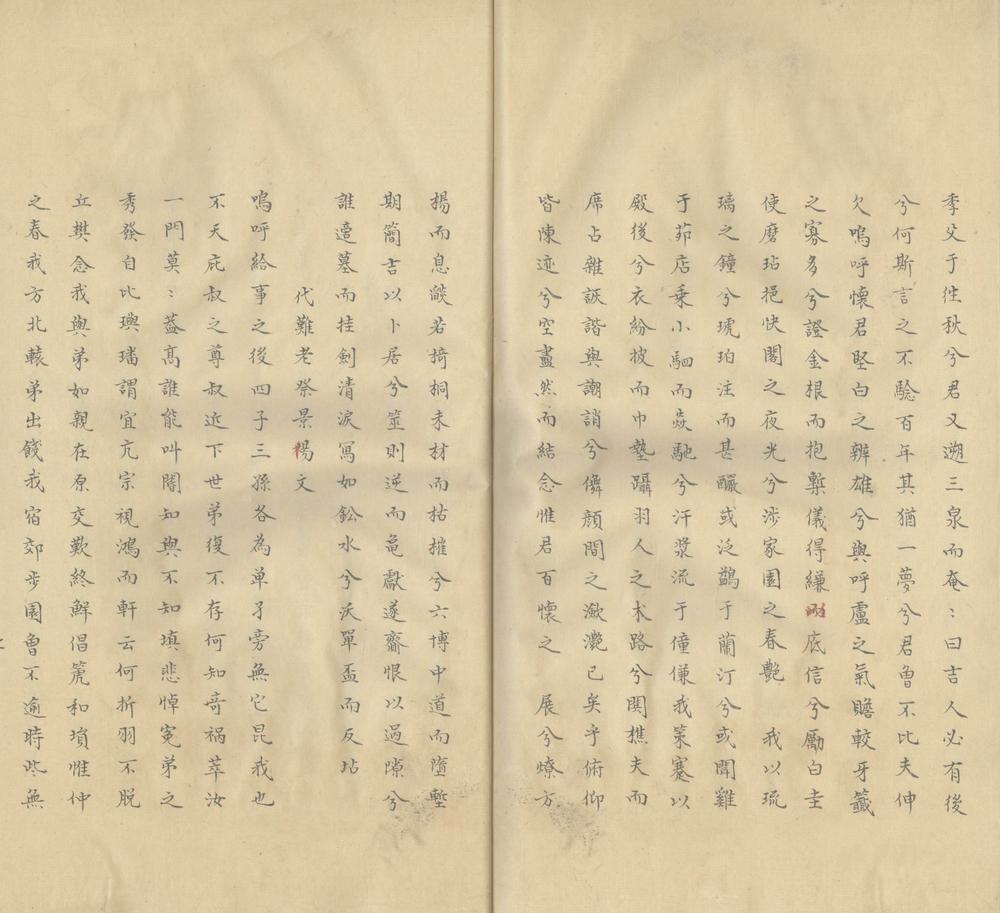 季父于徃秋兮君又遡三泉而奄〻曰吉人必有後
兮何斯言之不驗百年其猶一夢兮君曾不比夫伸
欠嗚呼懷君堅白之辨雄兮與呼盧之氣贍較牙籤
之寡多兮證金根而抱槧儀得縑底信兮勵白圭
使磨玷挹快閣之夜光兮涉家園之春艷 我以琉
璃之鐘兮琥珀注而甚釅或泛鷁于蘭汀兮或聞雞
于茆店乗小駟而焱馳兮汗漿流于僮傔我策蹇以
殿後兮衣紛披而巾墊躡羽人之木路兮関樵夫而
席占雜詼諧與謿誚兮儕顔間之瀲灧已矣乎俯仰
皆陳迹兮空盡然而結念惟君百懷之 展兮燎方
揚而息燄若掎桐未材而枯摧兮六博中道而墮塹
期簡吉以卜居兮筮則逆而龜厭遂齎恨以過隙兮
誰造墓而挂劍清淚寫如鉛水兮沃單盃而反坫
代難老祭景楊文
嗚呼給事之後四子三孫各為单孑旁無它昆我也
不天庇叔之尊叔近下世弟復不存何知竒禍萃汝
一門莫〻葢髙誰能叫閽知與不知填悲悼寃弟之
秀發自比璵璠謂宜亢宗視鴻而軒云何折羽不脱
丘樊念我與弟如親在原交歎終鮮倡箎和塤惟仲
之春我方北轅弟出餞我宿郊步園曽不逾時此無